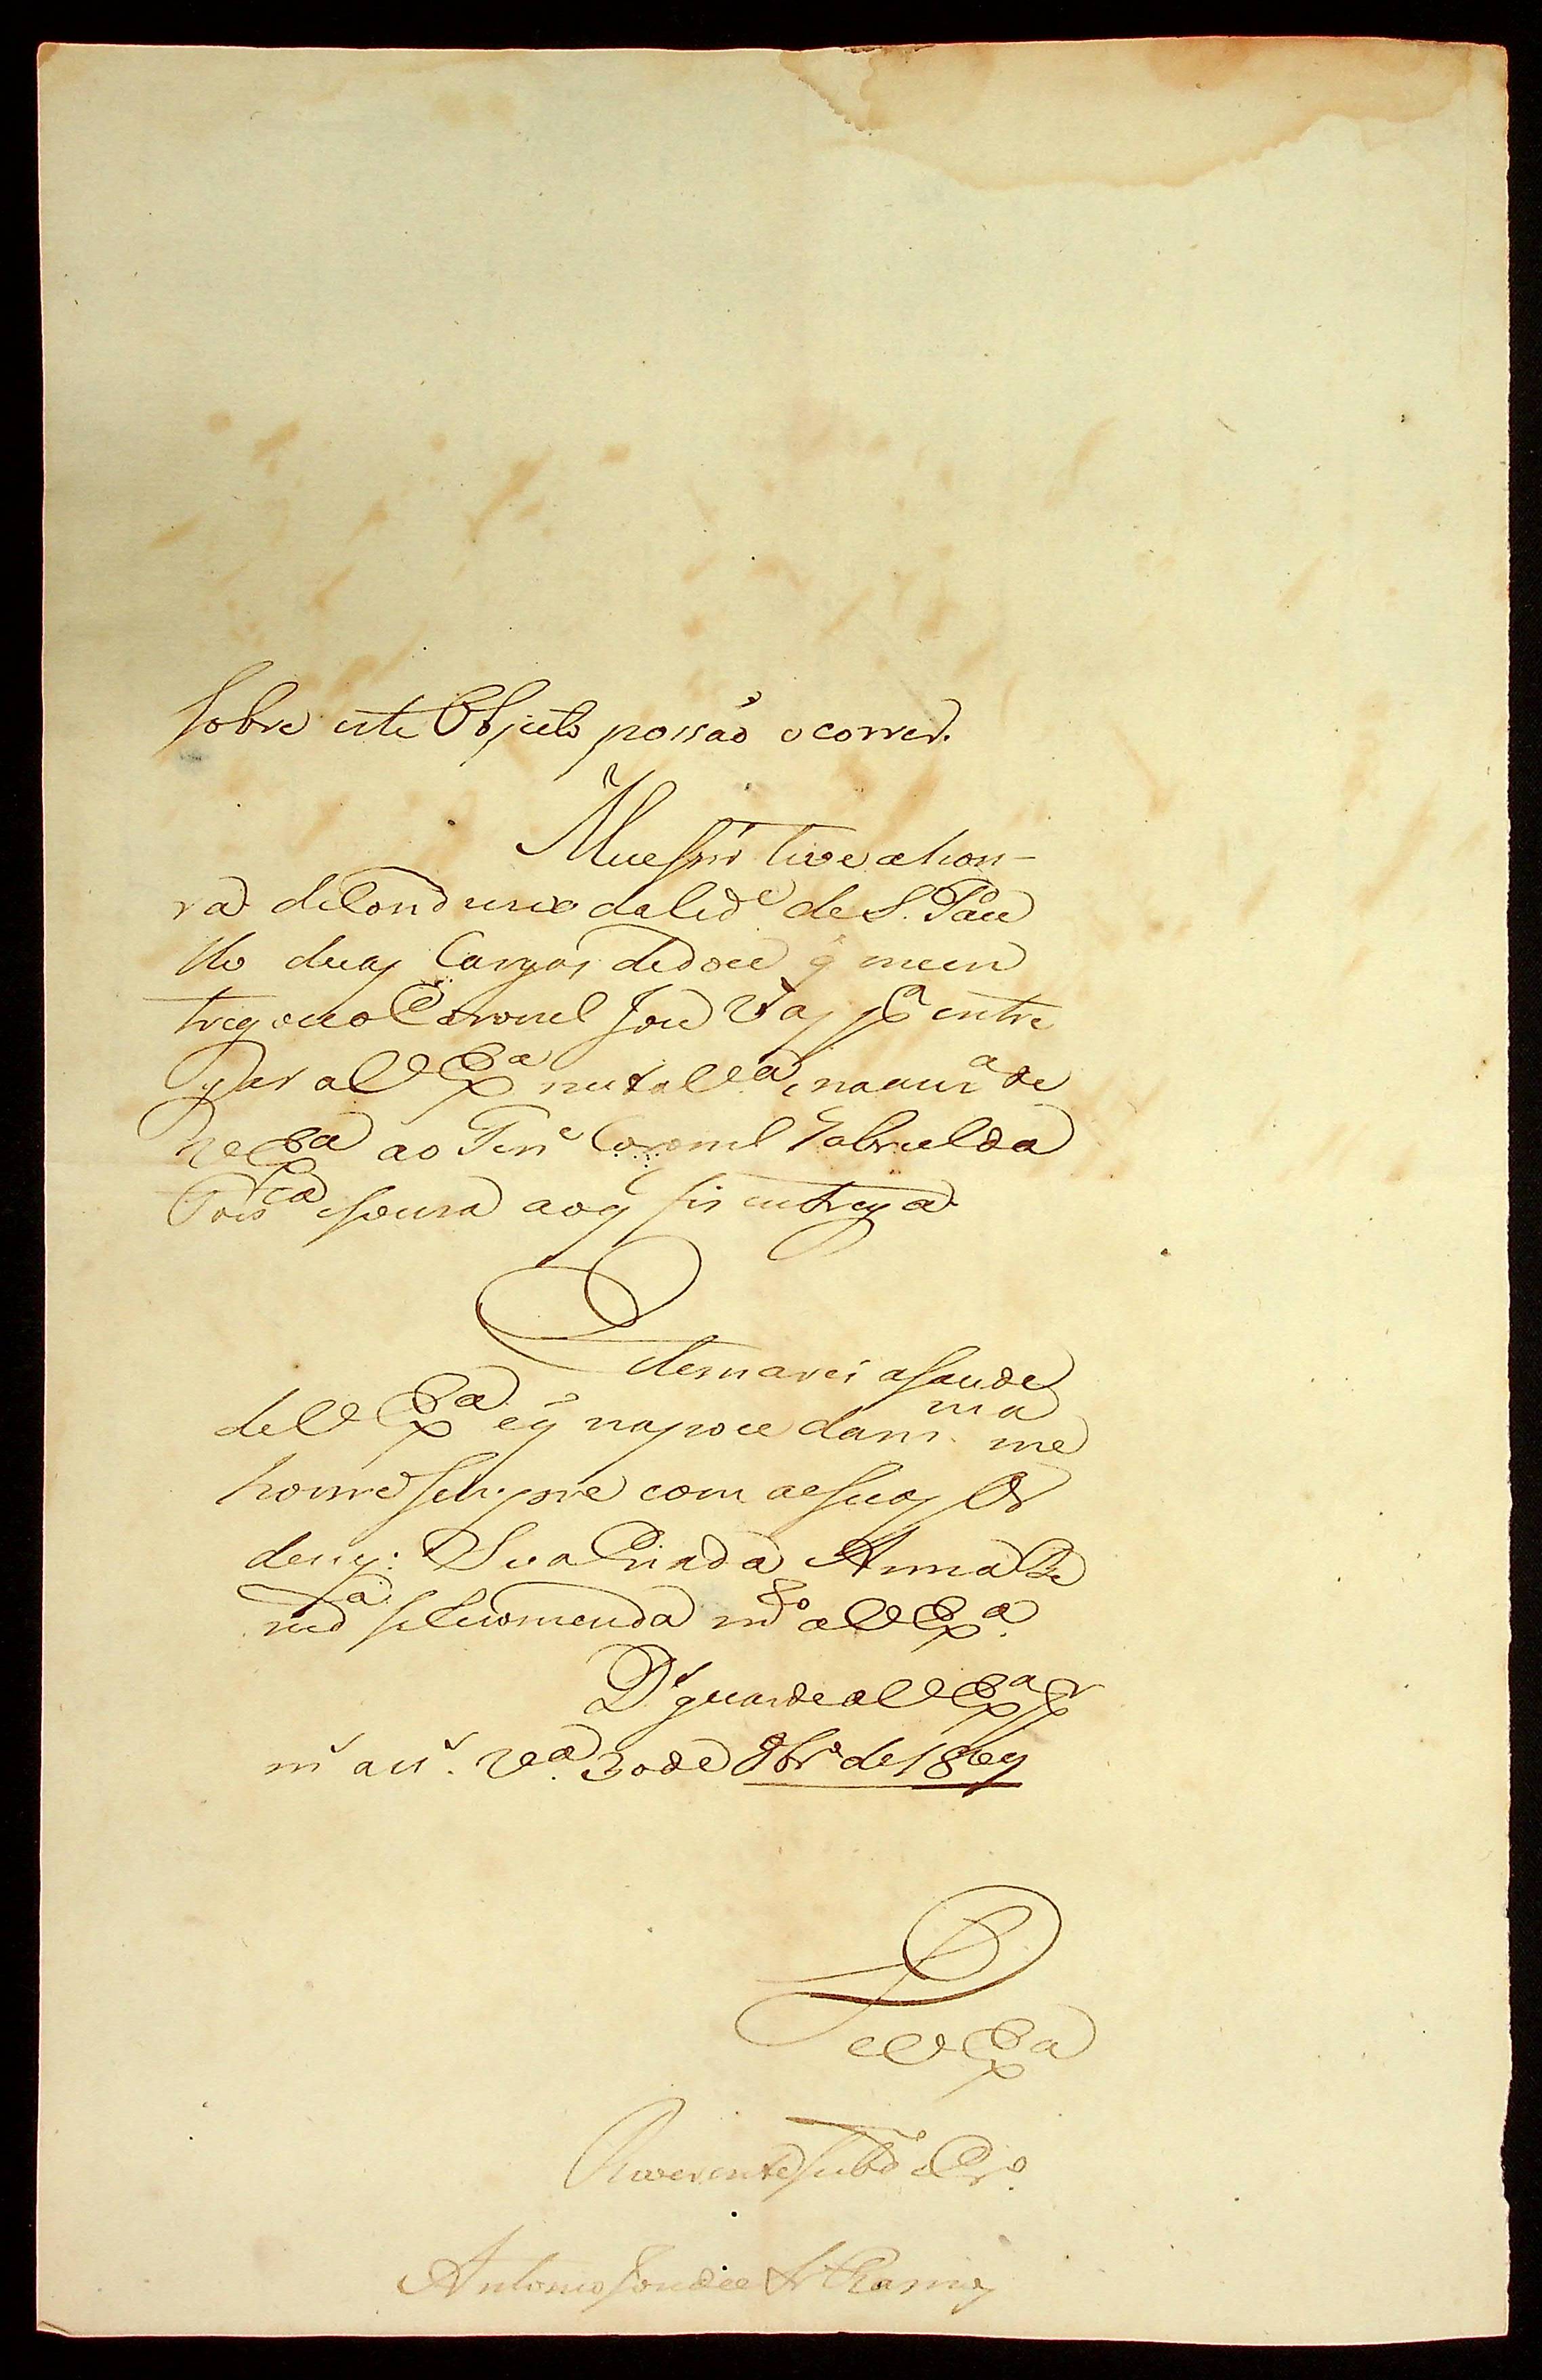 Sobre este Objecto possaõ ocorrer.
tive a hon-
ra de Conduzir da Cid.e de S. Pau
llo duas Cargas de doce q̃ me en
tregou o Coronel Joze Vas pa entre
gar a V Exa nesta Va, e na auza de
V Exa ao Tene Coronel Gabriel da
Fonca e souza ao q̃ fis entrega.
Estemarei a saude
de V Exa e q̃ na posse da mma me
honre sempre com as suas Or
dens: Sua Criada Anna Be
neda se Recomenda mto a V Exa.
Ds guarde a V Exa pr
ms ans. Va 30 de 8bro de 18
De V Exa
Reverente subdo e Cro.
Antonio Joze de